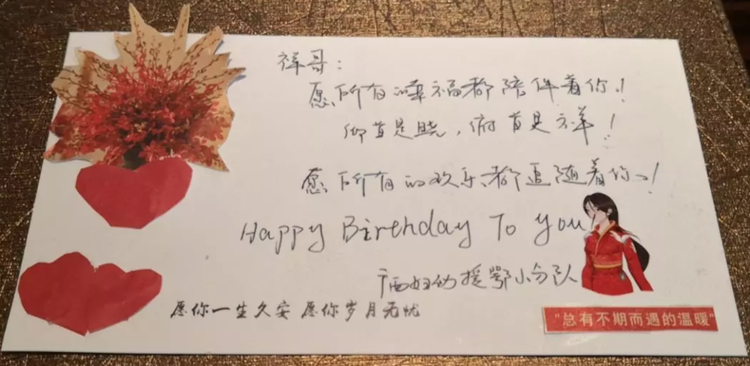 祥哥：
愿所有的幸福都陪伴着你！
仰首是晓，俯首是祥！
愿所有的欢乐都追随着你！
Happy Birthday To You
广西妇幼援鄂小分队
愿你一生久安 愿你岁月无忧
"总有不期而遇的温暖"